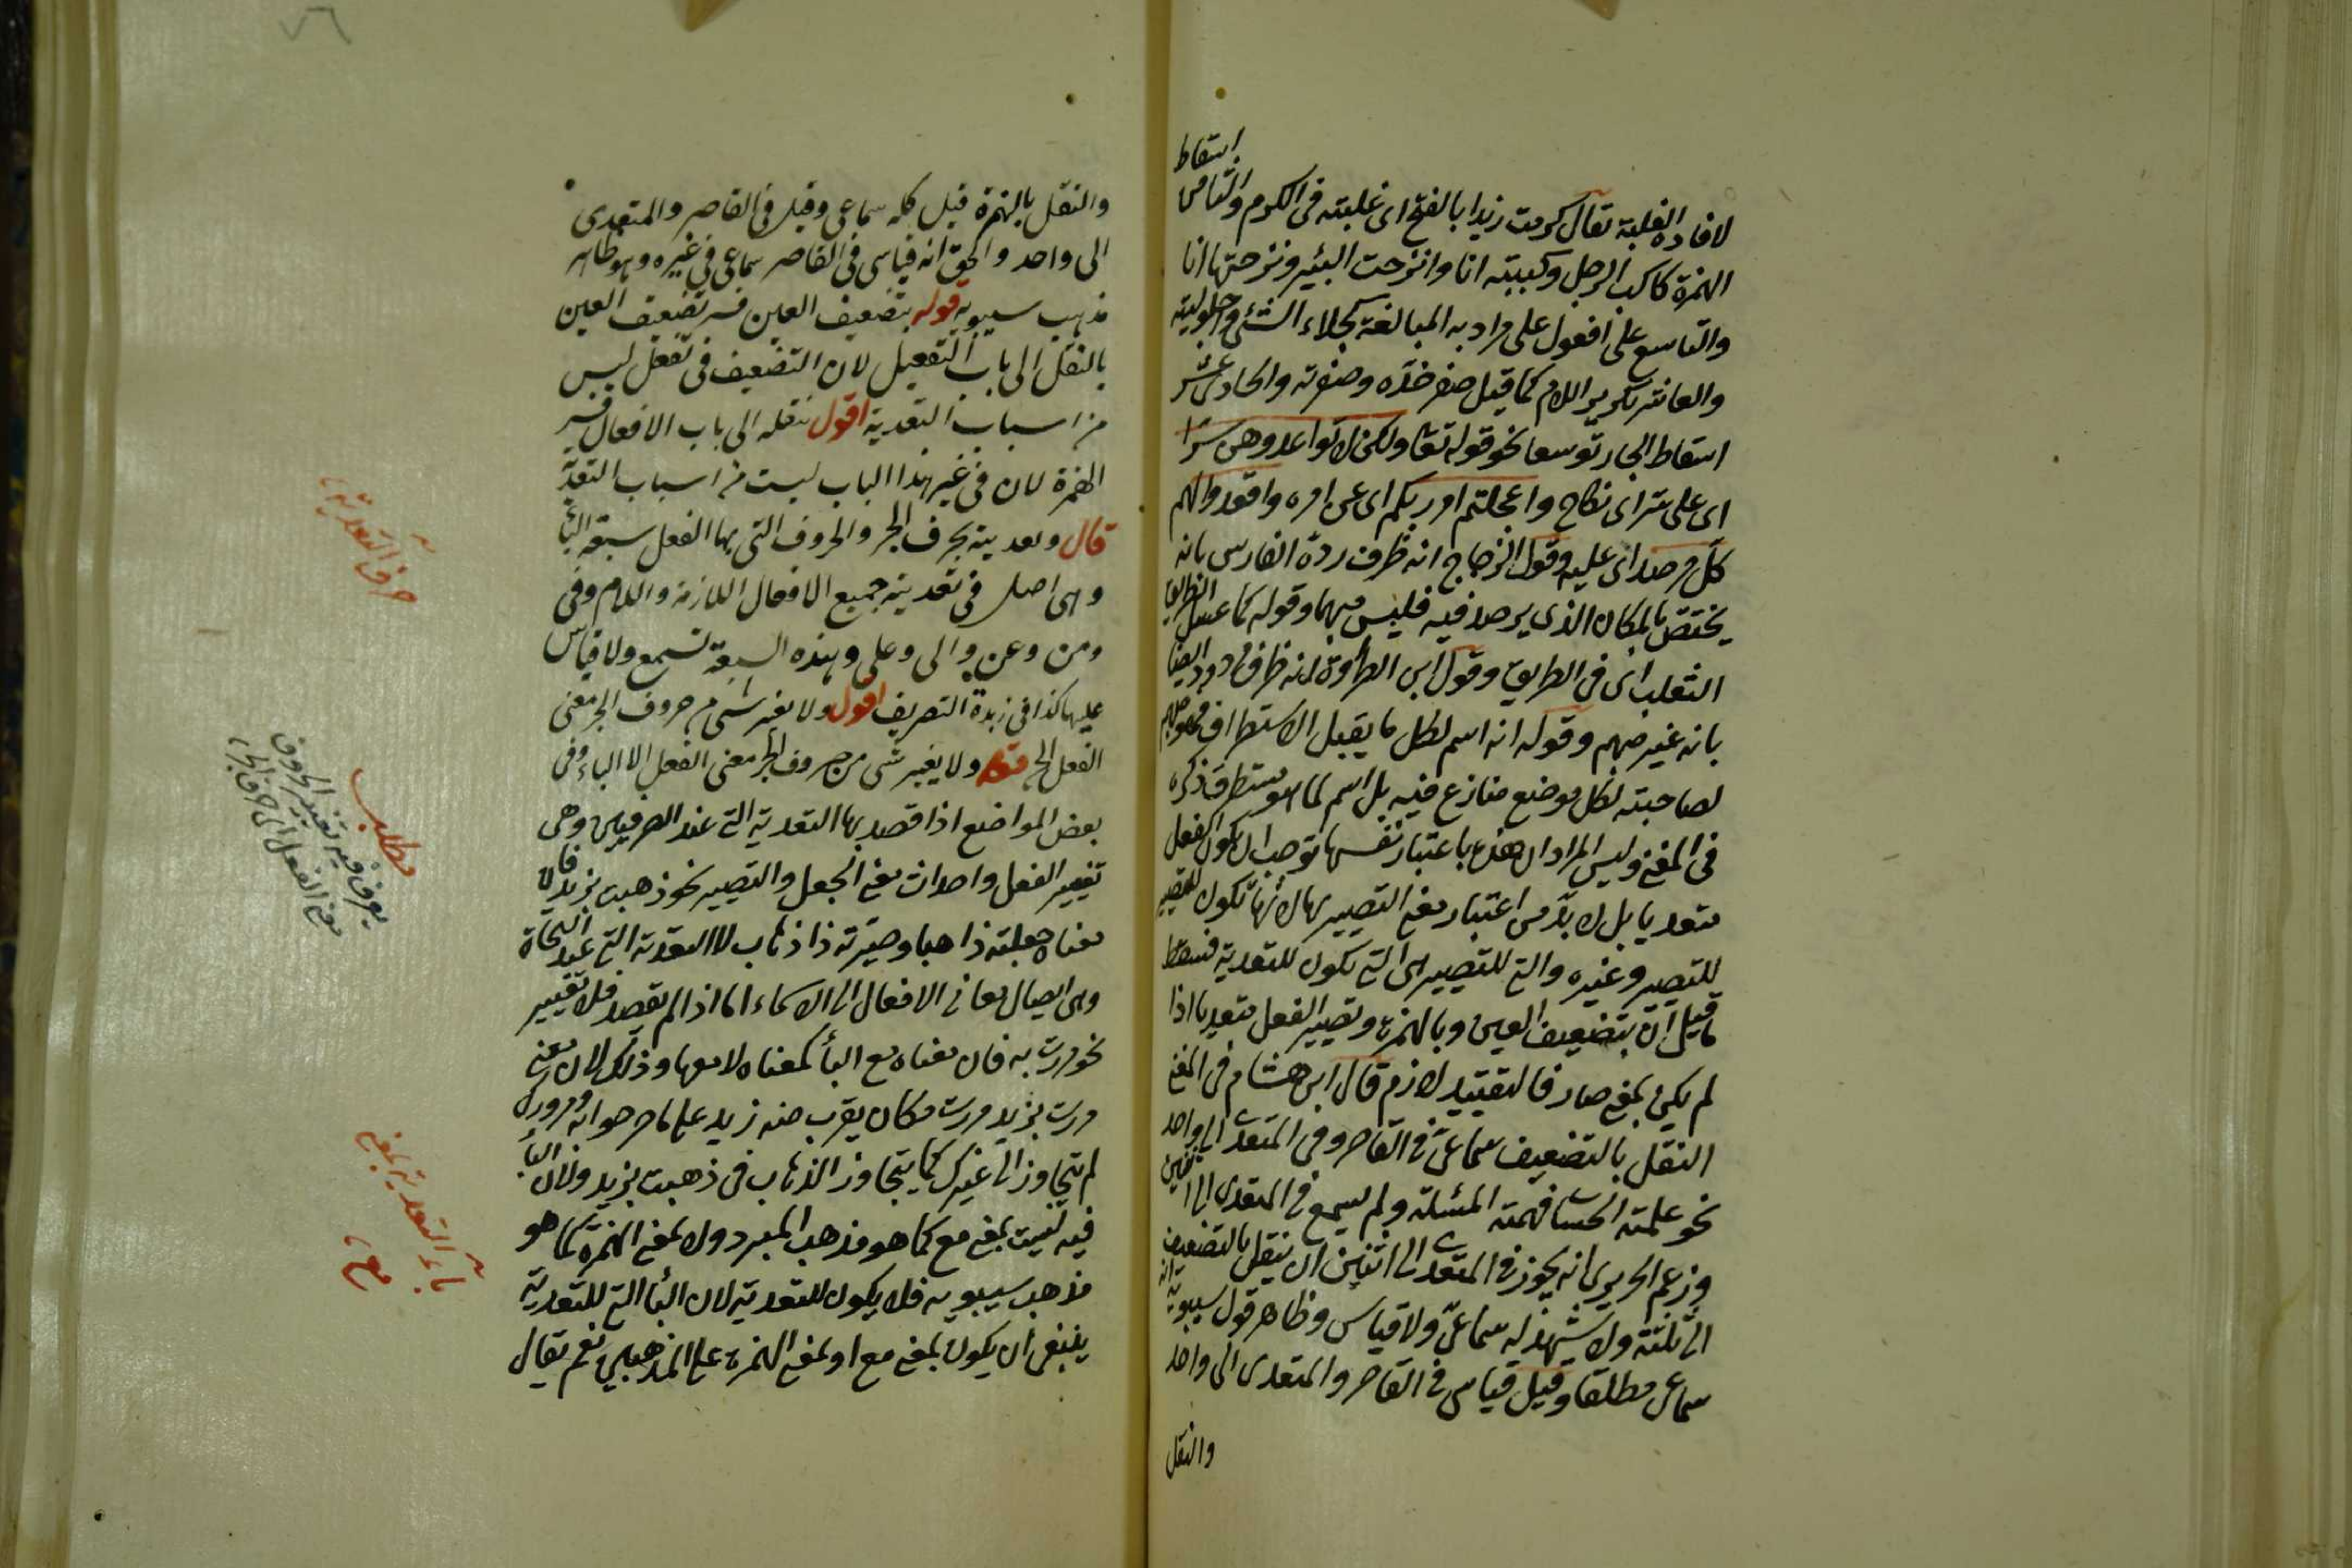 اسقاط
لافادة الغلبة تقال كرمت زيدا بالفتح اى غلبته فى الكرم والثامن
الهمزة كاكب الرجل وكببته انا وانزحت البئر ونزحتها انا
والتاسع على افعول على مراد به المبالغة كجلاء الشئ واجلوليته
والعاشر تكرير اللام كما قيل صغر خده وصغرته والحادى عشر
اسقاط الجار توسعا نحو قوله تعا ولكن لا تواعدوهن سرا
اى على سر اى نكاح واعجلتم امر ربكم اى عن امره واقعدوا لهم
كل مرصد اى عليه وقول الزجاج انه ظرف رده الفارس بانه
يختص بالمكان الذى يرصد فيه فليس مبهما وقوله كما عسل الطريق
الثعلب اى فى الطريق وقول ابن الطراوة انه ظرف مردود ايضا
بانه غير مبهم وقوله انه اسم لكل ما يقبل الاستطراق فهو مبهم
لصاحبته لكل موضع منازع فيه بل اسم لما هو مستطرق ذكره
فى المغنى وليس المراد ان هذه باعتبار نفسها توجب ان يكون الفعل
متعديا بل لا بد من اعتبار معنى التصيير بها لانها تكون للتصيير
للتصيير وغيره والتى للتصيير هى التى تكون للتعدية فسقط
ما قيل ان بتضعيف العين وبالهمزة وتصيير الفعل متعديا اذا
لم يكن بمعنى صار فالتقييد لازم قال ابن هشام فى المغنى
النقل بالتضعيف سماعى فى القاصر وفى المتعدى الى واحد
نحو علمته الحساب وفهمته المسئلة ولم يسمع فى المتعدى الى اثنين
وزعم الحريرى انه يجوز فى المتعدى الى اثنين ان ينقل بالتضعيف
الى ثلثة ولا يشهد له سماعى ولا قياس وظاهر قول سيبويه انه
سماعى مطلقا وقيل قياس فى القاصر والمتعدى الى واحد
والنقل
والنقل بالهمزة قيل كله سماعى وقيل فى القاصر والمتعدى
الى واحد والحق انه قياسى فى القاصر سماعى فى غيره وهو ظاهر
مذهب سيبويه قوله بتضعيف العين فسر تضعيف العين
بالنقل الى باب التفعيل لان التضعيف فى تفعل ليس
من اسباب التعدية اقول نقله الى باب الافعال فسر
الهمزة لان فى غير هذا الباب ليست من اسباب التعدية
قال وتعديته بحرف الجر والحروف التى بها الفعل سبعة الباء
وهى اصل فى تعدية جميع الافعال اللازمة واللام وفى
ومن وعن والى وعلى وهذه السبعة تسمع ولا قياس
عليها كذا فى زبدة التصريف اقول ولا يغير شئ من حروف الجر معنى
الفعل الخ قوله ولا يغير شئ من حروف الجر معنى الفعل الا الباء وفى
بعض المواضع اذا قصد بها التعدية التى عند الصرفيين وهى
تغيير الفعل واحداث معنى الجعل والتصيير نحو ذهبت بزيد فان
معناه جعلته ذاهبا وصيرته ذا ذهاب لا التعدية التى عند النحاة
وهى ايصال معانى الافعال الى الاسماء اما اذا لم يقصد فلا تغيير
نحو مررت به فان معناه مع الباء كمعناه لا معها وذلك لان معنى
مررت بزيد مررت مكان يقرب منه زيد على ما صرحوا به ومرورك
لم يتجاوز الى غيرك كما يتجاوز الذهاب فى ذهبت بزيد ولان الباء
فيه ليست بمعنى مع كما هو مذهب المبرد ولا بمعنى الهمزة كما هو
مذهب سيبويه فلا يكون للتعدية لان الباء التى للتعدية
ينبغى ان يكون بمعنى مع او بمعنى الهمزة على المذهبين نعم يقال
حرف التعدية
مطلب
يعرف فيه تغيير الحروف
معنى الفعل اى حرف الجر
باء التعدية بمعنى
مع
٧٦